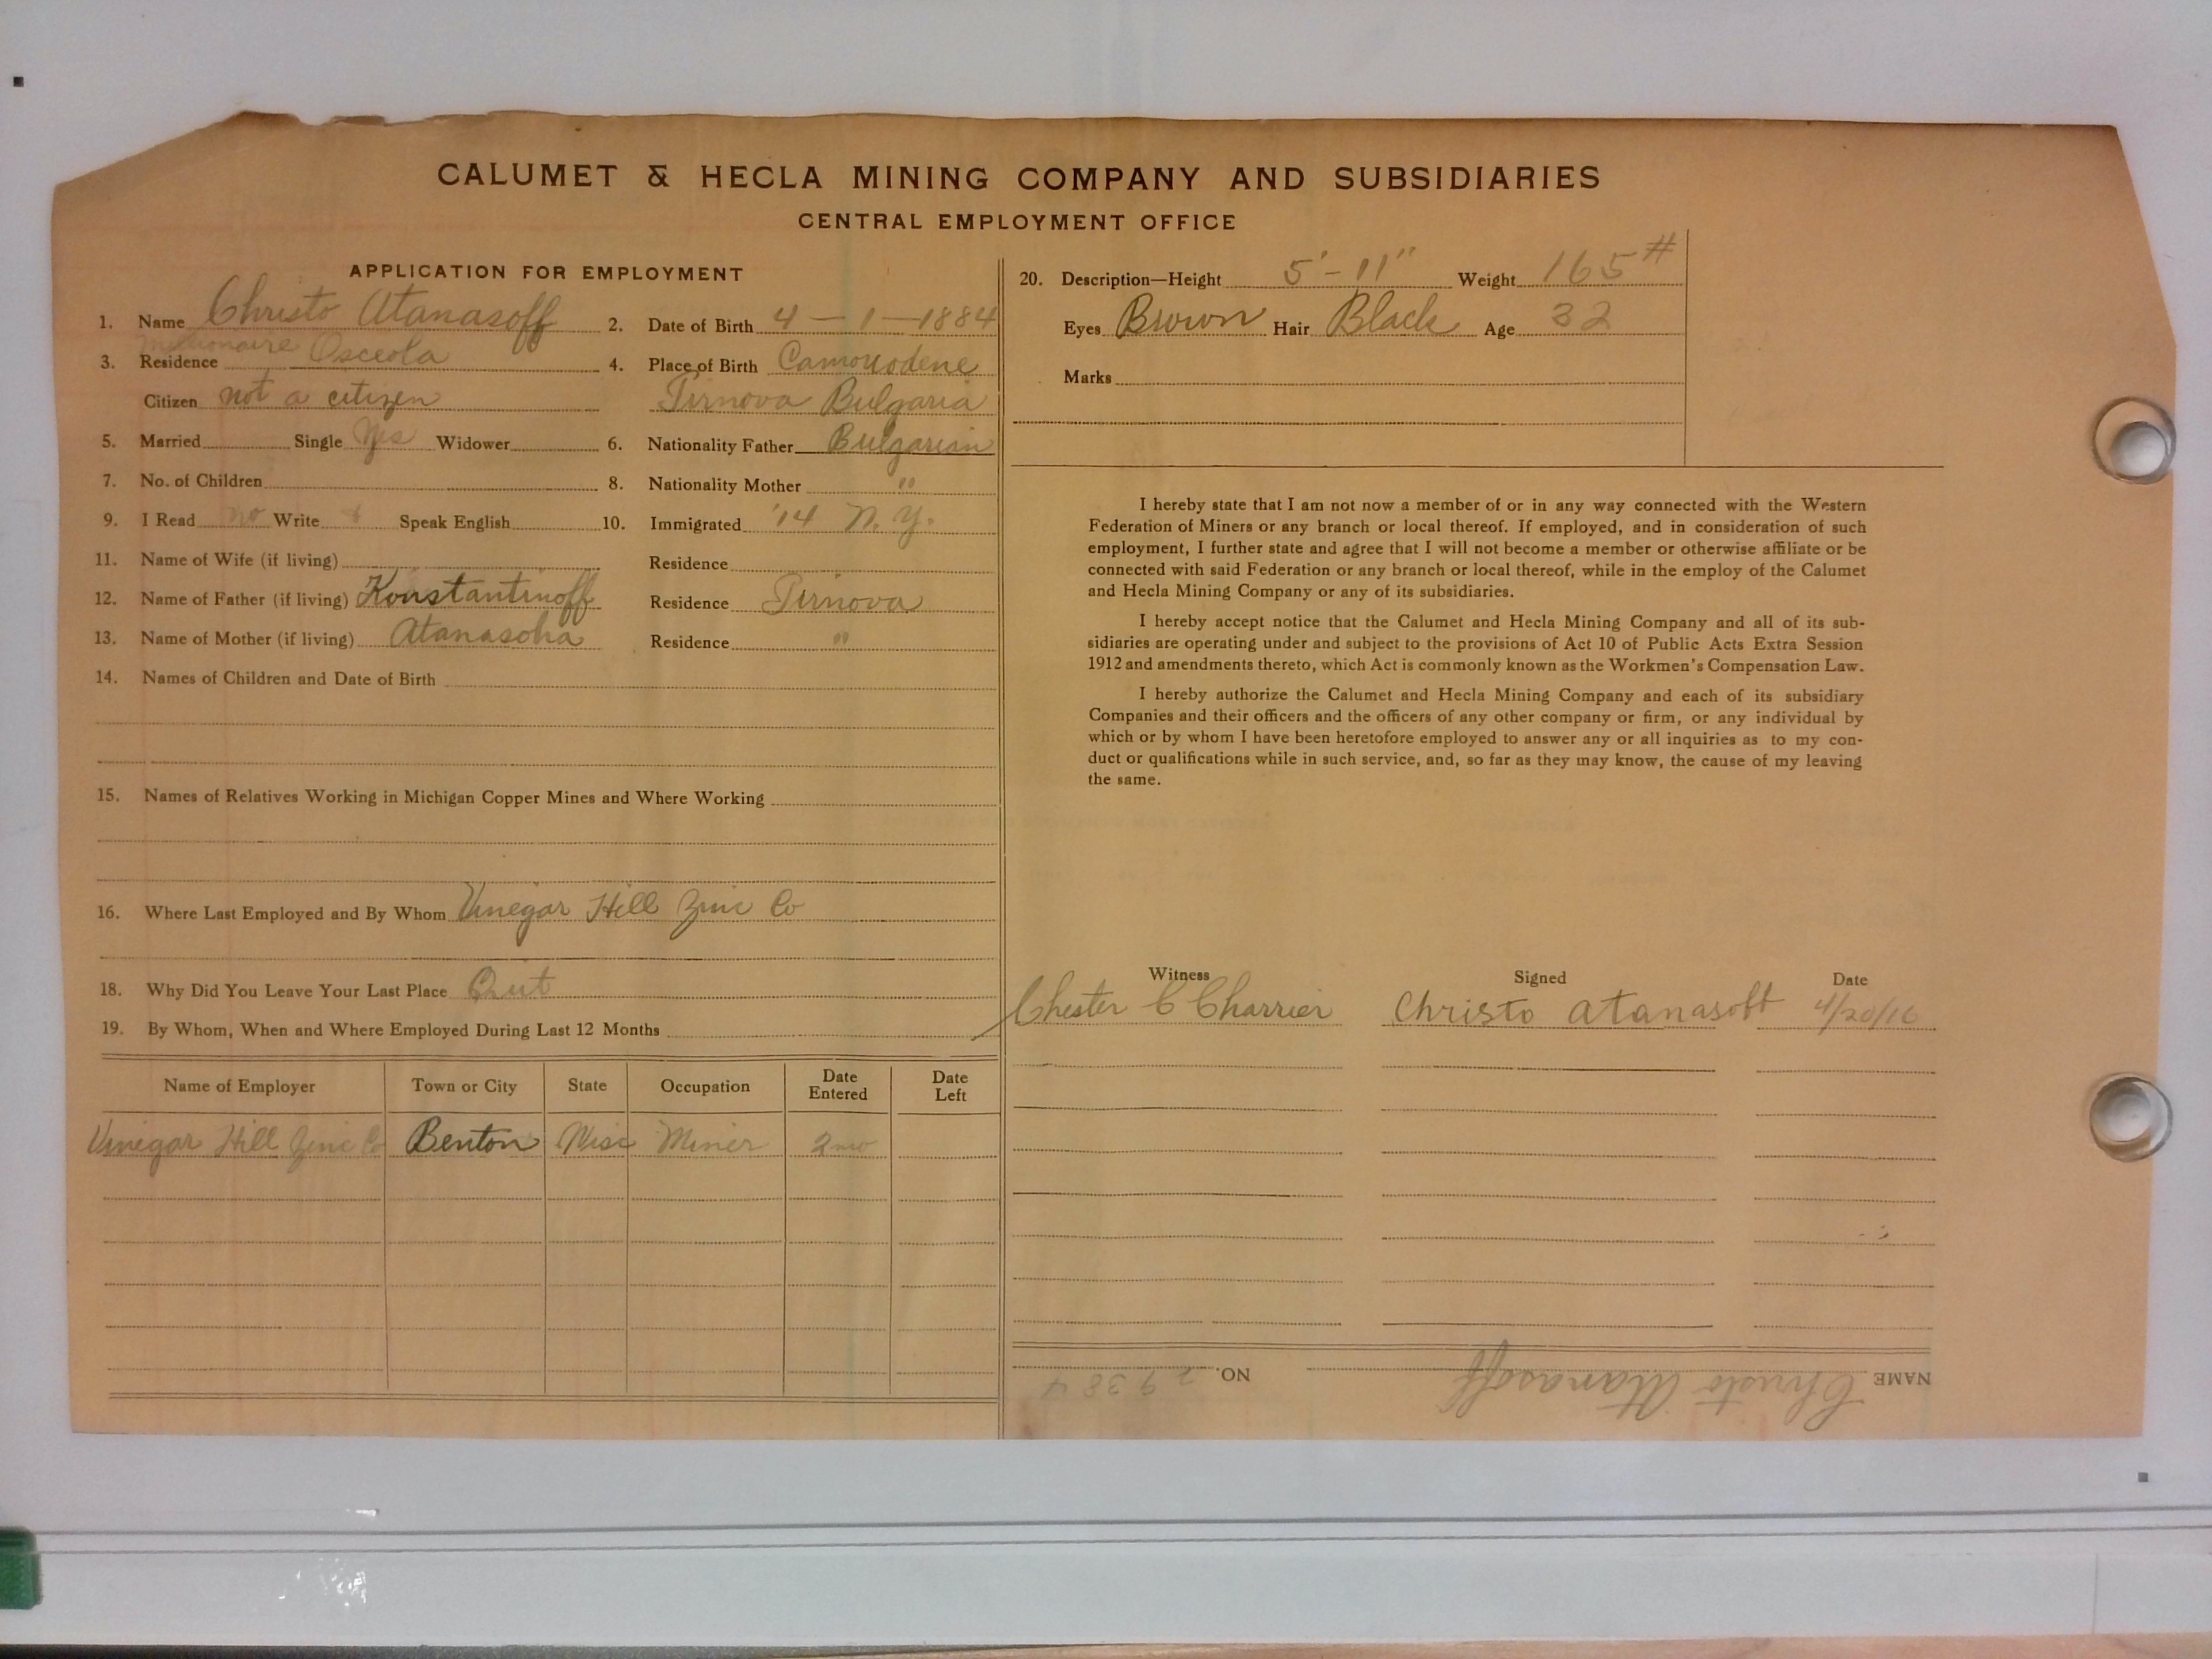 CALUMET & HECLA MINING COMPANY AND SUBSIDIARIES
CENTRAL EMPLOYMENT OFFICE
APPLICATION FOR EMPLOYMENT
1. Name Christo Atanasoff 2. Date of Birth 4-1-1884
3. Residence Osceola 4. Place of Birth
Citizen not a citizen Tirnova Bulgaria
5. Married Single Yes Widower 6. Nationality Father Bulgarian
7. No. of Children 8. Nationality Mother "
9. I Read no Write Speak English 10. Immigrated '14 N.Y.
11. Name of Wife (if living) Residence
12. Name of Father (if living) Konstantinoff Residence Tirnova
13. Name of Mother (if living) Residence "
14. Names of Children and Date of Birth
15. Names of Relatives Working in Michigan Copper Mines and Where Working
16. Where Last Employed and By Whom Vinegar Hill Zinc Co
18. Why Did You Leave Your Last Place Quit
19. By Whom, When and Where Employed During Last 12 Months
Name of Employer Town or City State Occupation Date Entered Date Left
Vinegar Hill Zinc Co Benton Wisc Miner 2 mo
20. Description—Height 5'-11" Weight 165#
Eyes Brown Hair Black Age 32
Marks
I hereby state that I am not now a member of or in any way connected with the Western
Federation of Miners or any branch or local thereof. If employed, and in consideration of such
employment, I further state and agree that I will not become a member or otherwise affiliate or be
connected with said Federation or any branch or local thereof, while in the employ of the Calumet
and Hecla Mining Company or any of its subsidiaries.
I hereby accept notice that the Calumet and Hecla Mining Company and all of its sub-
sidiaries are operating under and subject to the provisions of Act 10 of Public Acts Extra Session
1912 and amendments thereto, which Act is commonly known as the Workmen's Compensation Law.
I hereby authorize the Calumet and Hecla Mining Company and each of its subsidiary
Companies and their officers and the officers of any other company or firm, or any individual by
which or by whom I have been heretofore employed to answer any or all inquiries as to my con-
duct or qualifications while in such service, and, so far as they may know, the cause of my leaving
the same.
Witness Signed Date
Chester C Charrier Christo Atanasoff 4/20/16
NAME Christo Atanasoff NO. 29384